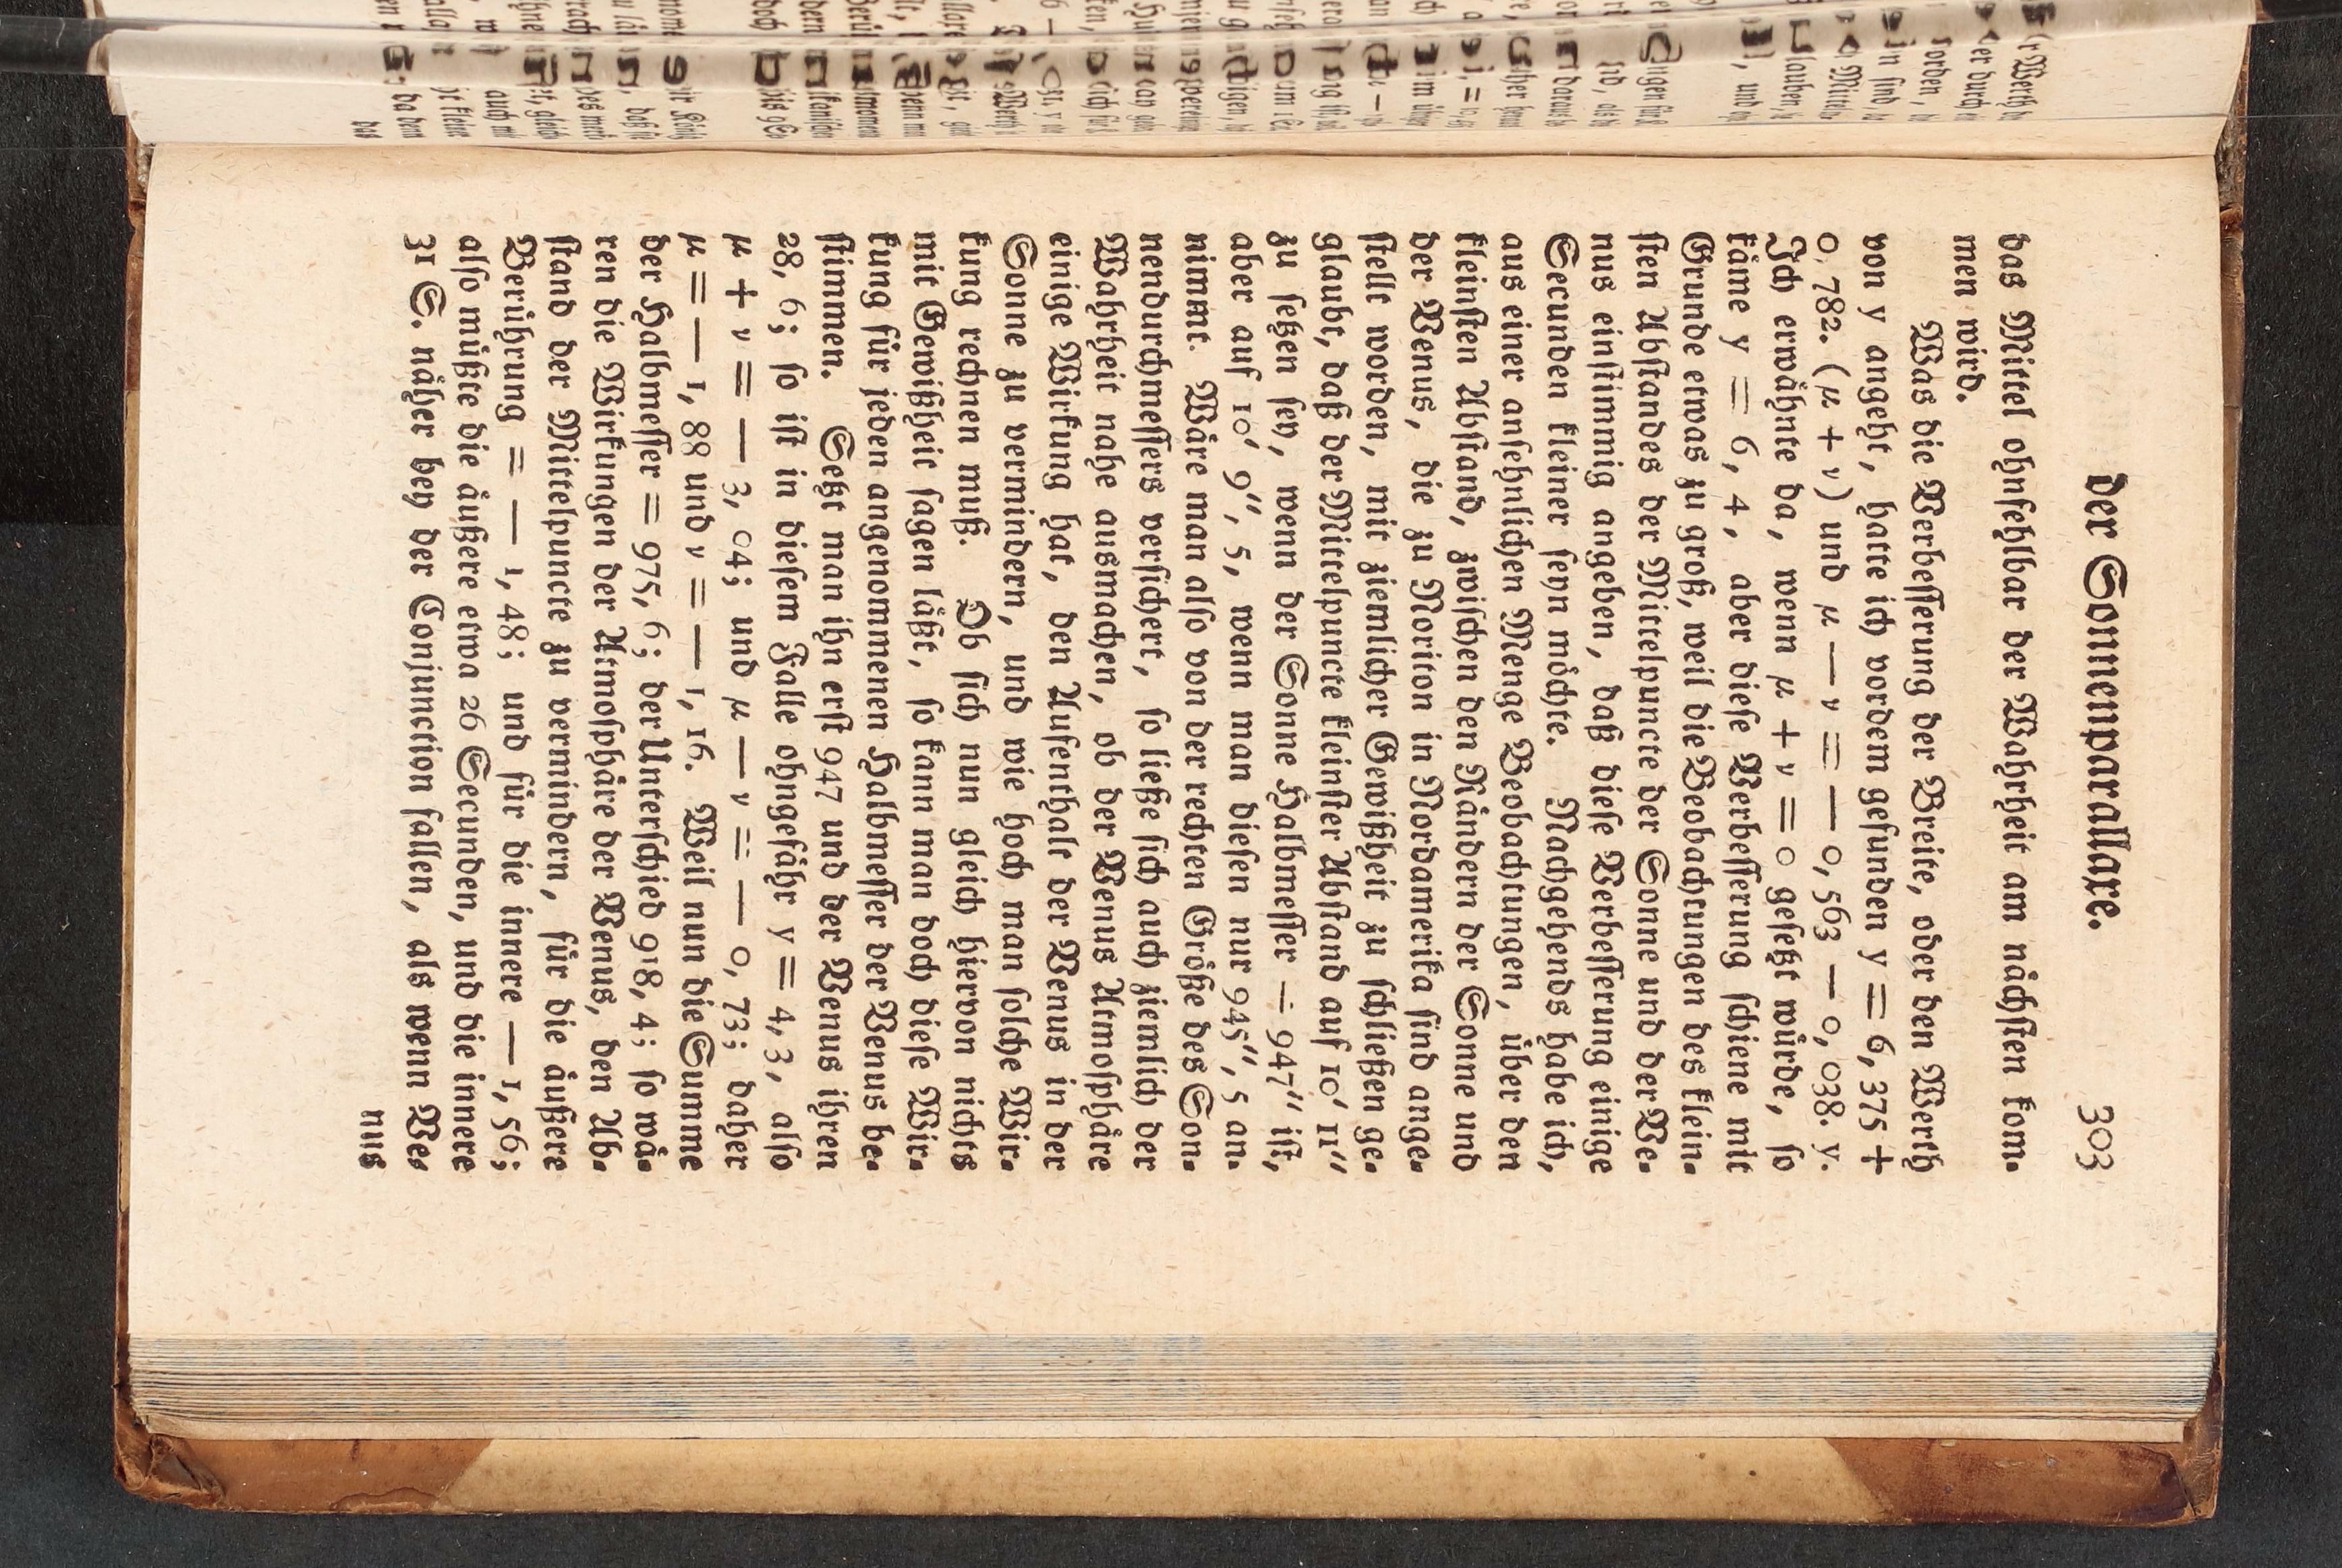 der Sonnenparallaxe. 303
das Mittel ohnfehlbar der Wahrheit am nächsten kom-
men wird.
Was die Verbesserung der Breite, oder den Werth
von y angeht, hatte ich vordem gefunden y = 6, 375 +
0, 782. (μ + ν) und μ — ν = — 0, 563 — 0, 038. y.
Ich erwähnte da, wenn μ + ν = 0 gesetzt würde, so
käme y = 6, 4, aber diese Verbesserung schiene mit
Grunde etwas zu groß, weil die Beobachtungen des klein-
sten Abstandes der Mittelpuncte der Sonne und der Ve-
nus einstimmig angeben, daß diese Verbesserung einige
Secunden kleiner seyn möchte. Nachgehends habe ich,
aus einer ansehnlichen Menge Beobachtungen, über den
kleinsten Abstand, zwischen den Rändern der Sonne und
der Venus, die zu Noriton in Nordamerika sind ange-
stellt worden, mit ziemlicher Gewißheit zu schließen ge-
glaubt, daß der Mittelpuncte kleinster Abstand auf 10′ 11″
zu setzen sey, wenn der Sonne Halbmesser = 947″ ist,
aber auf 10′ 9″, 5, wenn man diesen nur 945″, 5 an-
nimmt. Wäre man also von der rechten Größe des Son-
nendurchmessers versichert, so ließe sich auch ziemlich der
Wahrheit nahe ausmachen, ob der Venus Atmosphäre
einige Wirkung hat, den Aufenthalt der Venus in der
Sonne zu vermindern, und wie hoch man solche Wir-
kung rechnen muß. Ob sich nun gleich hiervon nichts
mit Gewißheit sagen läßt, so kann man doch diese Wir-
kung für jeden angenommenen Halbmesser der Venus be-
stimmen. Setzt man ihn erst 947 und der Venus ihren
28, 6; so ist in diesem Falle ohngefähr y = 4, 3, also
μ + ν = — 3, 04; und μ — ν = — 0, 73; daher
μ = — 1, 88 und ν = — 1, 16. Weil nun die Summe
der Halbmesser = 975, 6; der Unterschied 918, 4; so wä-
ren die Wirkungen der Atmosphäre der Venus, den Ab-
stand der Mittelpuncte zu vermindern, für die äußere
Berührung = — 1, 48; und für die innere — 1, 56;
also müßte die äußere etwa 26 Secunden, und die innere
31 S. näher bey der Conjunction fallen, als wenn Ve-
nus